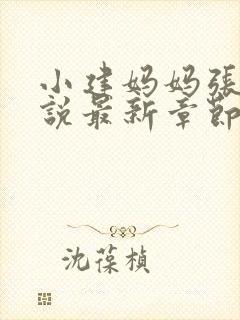 小建妈妈張
說最新章節
沈葆楨